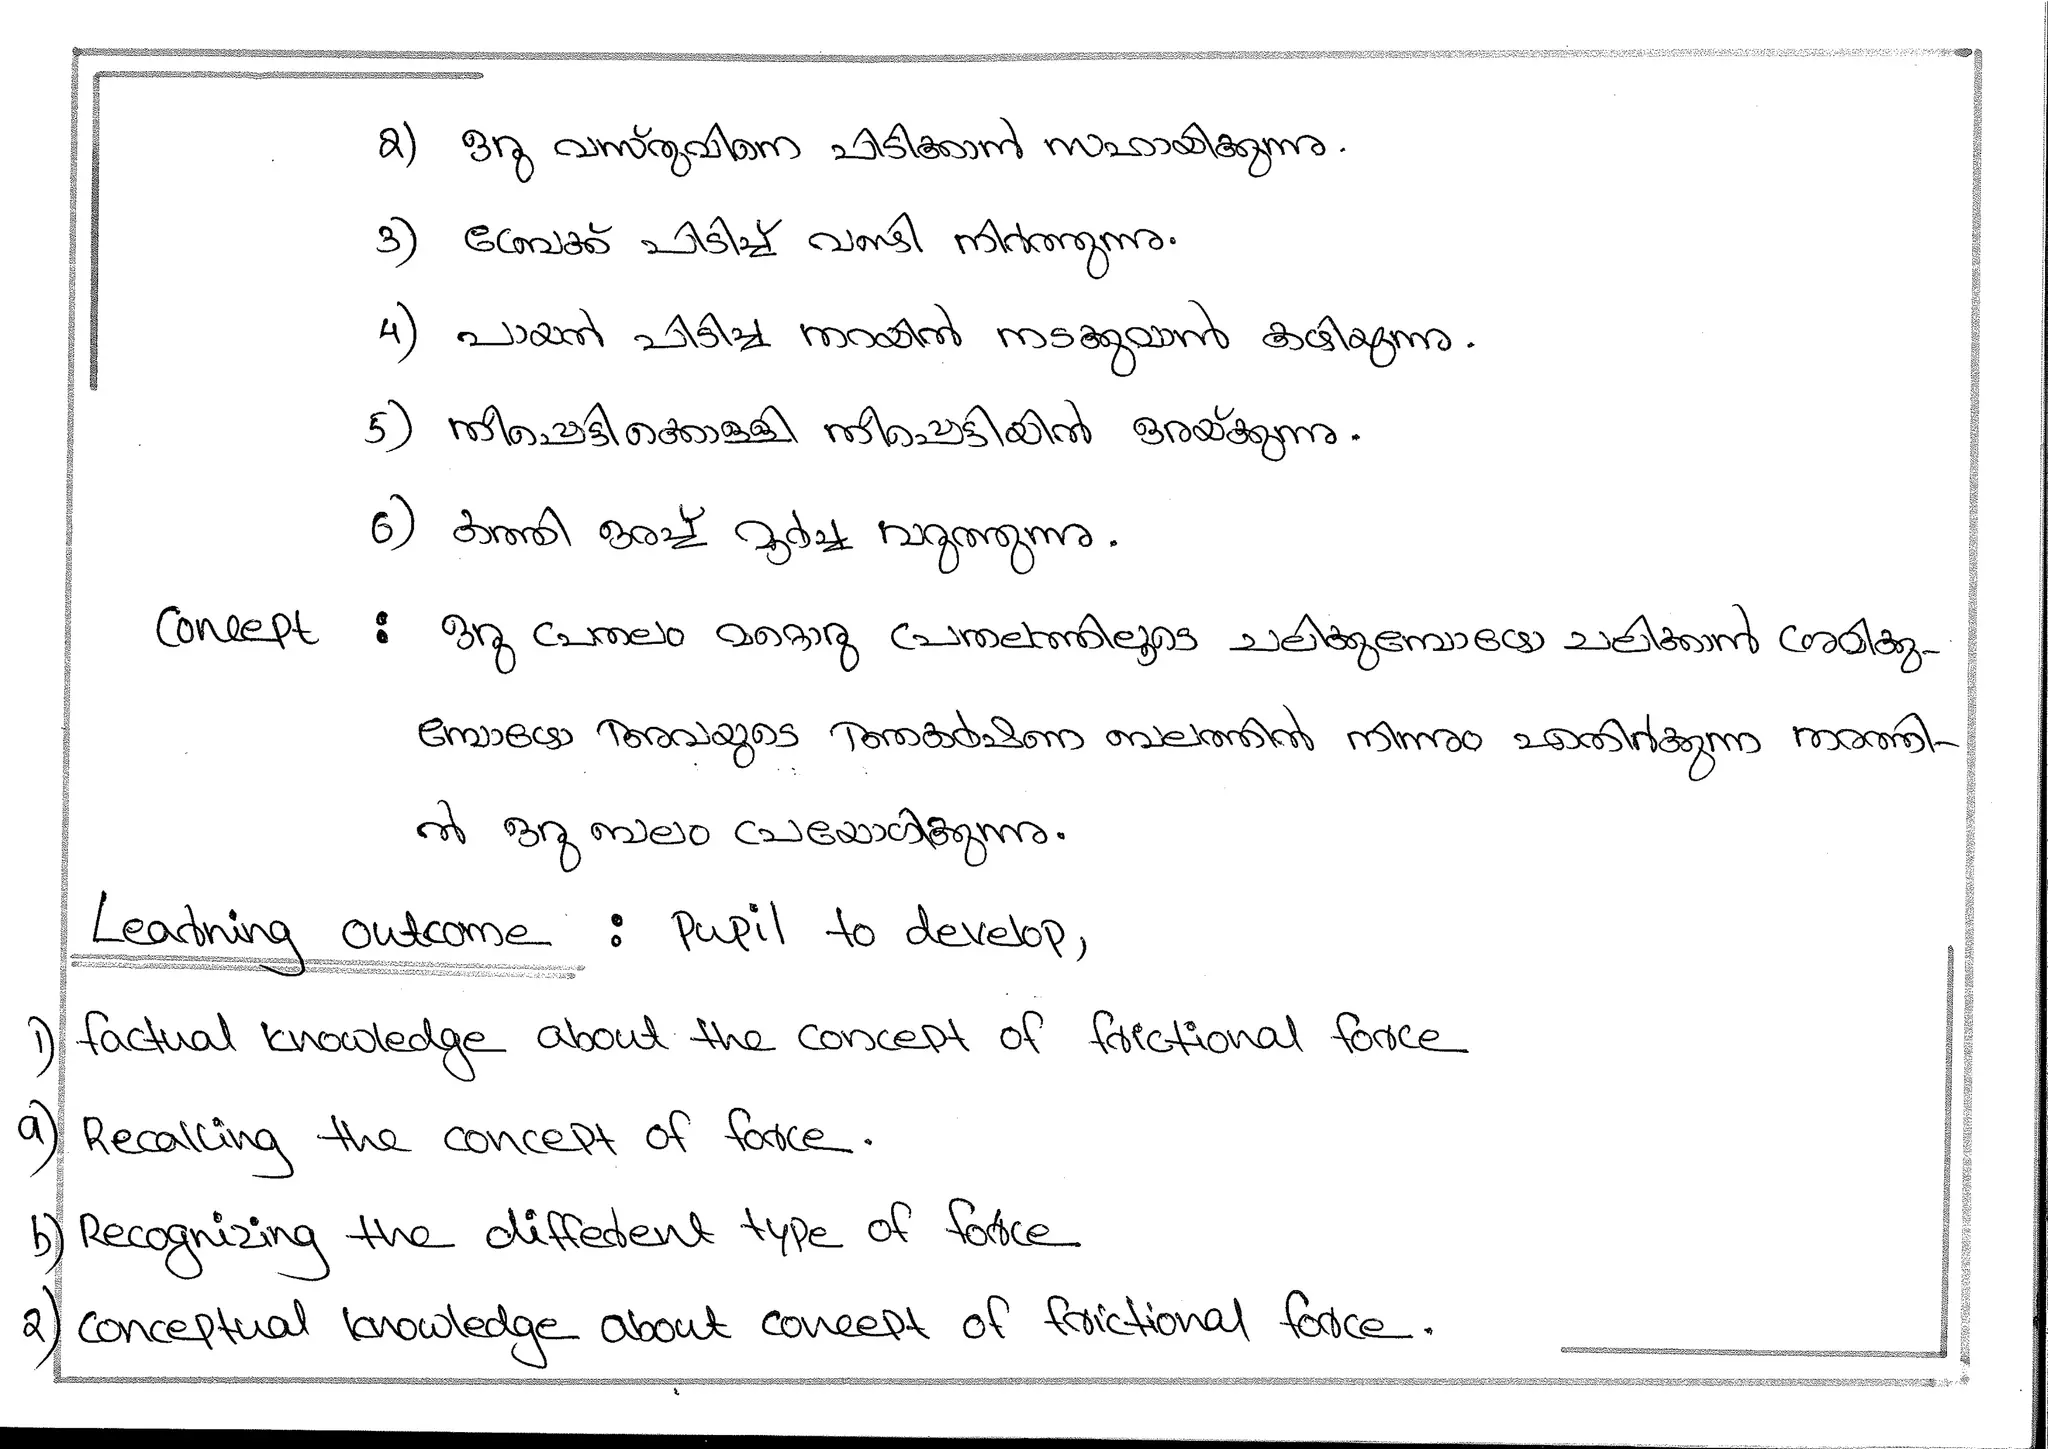 2) ഒരു വസ്തുവിനെ പിടിക്കാൻ സഹായിക്കുന്നു.
3) ബ്രേക്ക് പിടിച്ച് വണ്ടി നിർത്തുന്നു.
4) പായൽ പിടിച്ച തറയിൽ നടക്കുവാൻ കഴിയുന്നു.
5) തീപ്പെട്ടിക്കൊള്ളി തീപ്പെട്ടിയിൽ ഒരയ്ക്കുന്നു.
6) കത്തി ഒരച്ച് മൂർച്ച വരുത്തുന്നു.
Concept : ഒരു പ്രതലം മറ്റൊരു പ്രതലത്തിലൂടെ ചലിക്കുമ്പോഴോ ചലിക്കാൻ ശ്രമിക്കു-
മ്പോഴോ അവയുടെ ആകർഷണ ബലത്തിൽ നിന്നും എതിർക്കുന്ന തരത്തി-
ൽ ഒരു ബലം പ്രയോഗിക്കുന്നു.
Learning outcome : Pupil to develop,
1) factual knowledge about the concept of frictional force
a) Recalling the concept of force.
b) Recognizing the different type of force
2) conceptual knowledge about concept of frictional force.